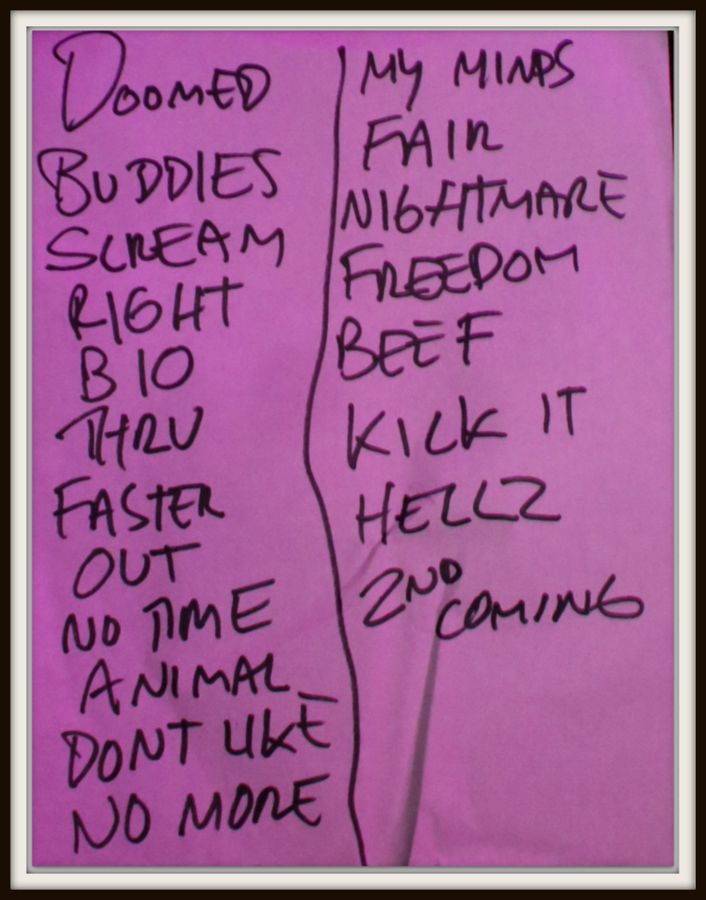 DOOMED
BUDDIES
SCREAM
RIGHT
BIO
THRU
FASTER
OUT
NO TIME
ANIMAL
DONT LIKE
NO MORE
MY MINDS
FAIR
NIGHTMARE
FREEDOM
BEEF
KICK IT
HELLZ
2ND
COMING